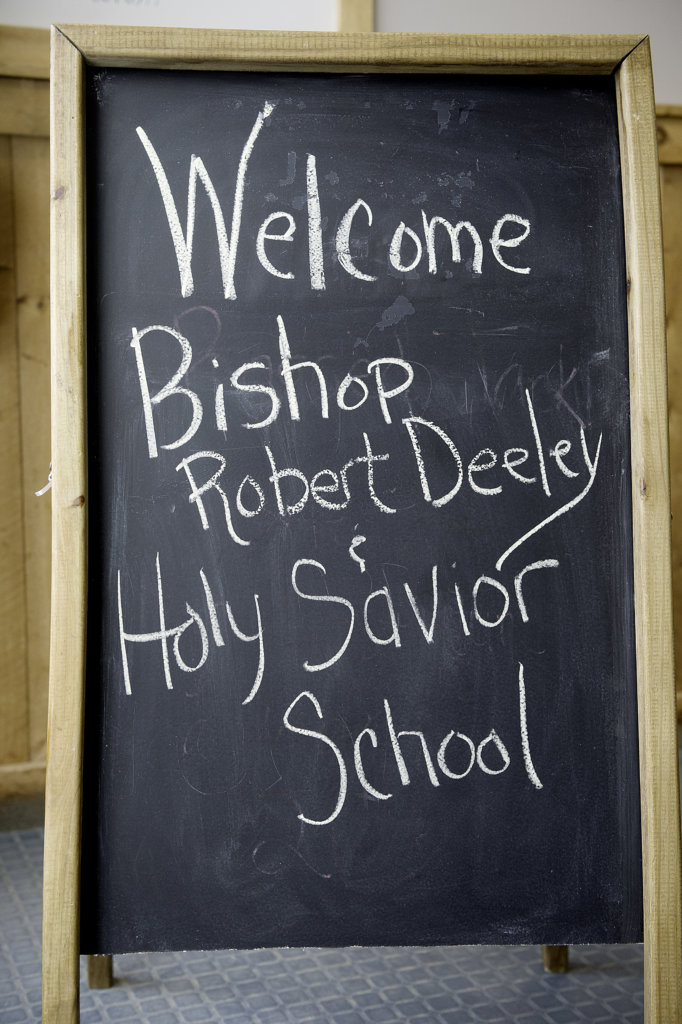 Welcome
Bishop
Robert Deeley
&
Holy Savior
School